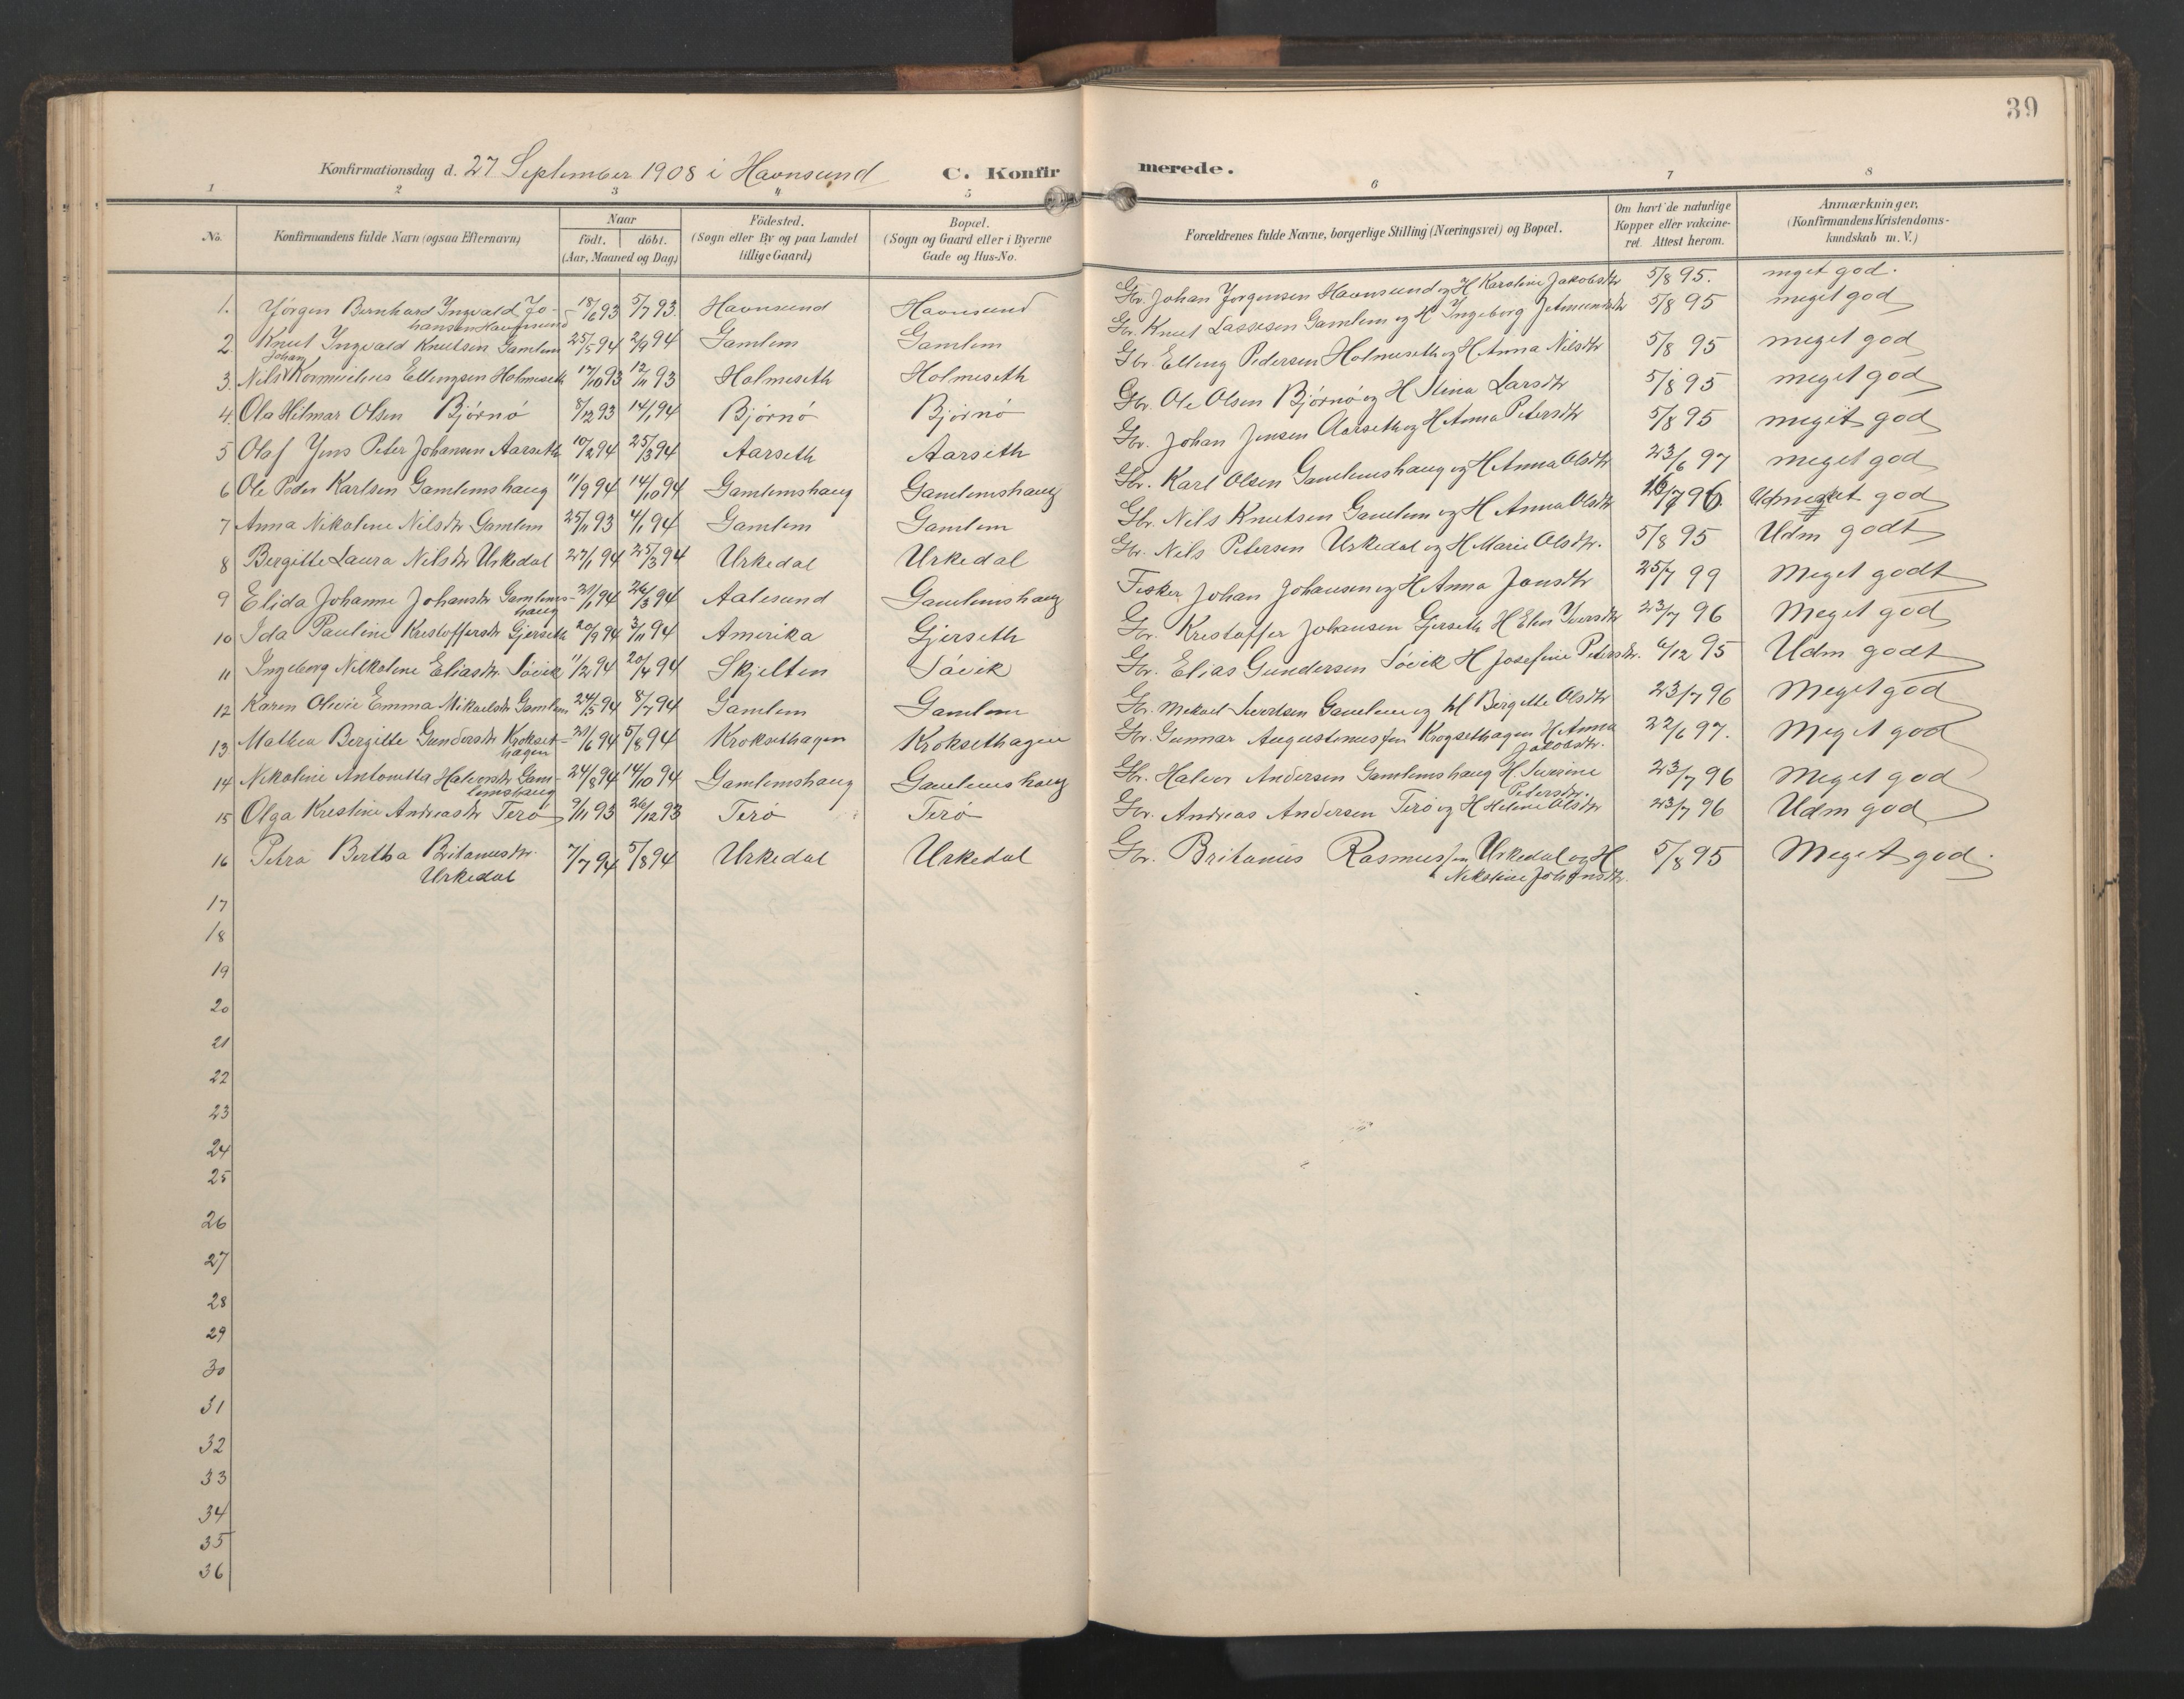 39
Konfirmationsdag d. 27 September 1908 i Havnsund C. Konfirmerede.
1 2 3 4 5 6 7 8
No. Konfirmandens fulde Navn (ogsaa Efternavn) Naar födt. döbt. (Aar, Maaned og Dag) Födested. (Sogn eller By og paa Landet tillige Gaard) Bopæl. (Sogn og Gaard eller i Byerne Gade og Hus-No. Forældrenes fulde Navne, borgerlige Stilling (Næringsvei) og Bopæl. Om havt de naturlige Kopper eller vakcineret. Attest herom. Anmærkninger, (Konfirmandens Kristendomskundskab m. V.)
1. Jörgen Bernhard Ingvald Johansen Havnsund 18/6 93 5/7 93. Havnsund Havnsund Gbr. Johan Jørgensen Havnsund og H Karoline Jakobsdtr 5/8 95. meget god.
2 Knut Ingvald Knutsen Gamlem 25/5 94 2/9 94 Gamlem Gamlem Gbr. Knut Lassesen Gamlem og H Ingeborg 5/8 95 meget god
3. Nils Johan Kornelius Ellingsen Holmeseth 17/10 93 12/11 93 Holmeseth Holmeseth Gbr. Elling Pedersen Holmeseth og H Anna Nilsdtr 5/8 95 meget god
4. Ola Hilmar Olsen Björnö 8/12 93 14/1 94 Björnö Björnö Gbr. Ole Olsen Björnö og H Stina Larsdtr 5/8 95 meget god
5 Olaf Jens Peter Johansen Aarseth 10/2 94 25/3 94 Aarseth Aarseth Gbr. Johan Jensen Aarseth og H Anna Petersdtr 5/8 95 meget god
6 Ole Peder Karlsen Gamlemshaug 11/9 94 14/10 94 Gamlemshaug Gamlemshaug Gbr. Karl Olsen Gamlemshaug og H Anna Olsdtr 23/6 97 meget god
7 Anna Nikoline Nilsdtr Gamlem 25/11 93 4/1 94 Gamlem Gamlem Gbr. Nils Knutsen Gamlem og H Anna Olsdtr 96. god
8 Bergitte Laura Nilsdtr Urkedal 27/1 94 25/3 94 Urkedal Urkedal Gbr. Nils Petersen Urkedal og H Marie Olsdtr. 5/8 95 Udm godt
9 Elida Johanne Johansdtr Gamlemshaug 21/1 94 26/3 94 Aalesund Gamlemshaug Fisker Johan Johansen og H Anna Jonsdtr 25/7 99 Meget godt
10 Ida Pauline Kristoffersdtr Gjerseth 20/9 94 3/11 94 Amerika Gjerseth Gbr. Kristoffer Johansen Gjerseth H Elen Iversdtr 23/7 96 Meget god
11 Ingeborg Nilkoline Eliasdtr. Sövik 11/2 94 20/4 94 Skjelten Sövik Gbr. Elias Gundersen Sövik H Josefine Petersdtr. 6/12 95 Udm godt
12 Karen Olivie Emma Mikaelsdtr Gamlem 24/5 94 8/7 94 Gamlem Gamlem Gbr. Mekael Sivertsen Gamlem og H Birgitte Olsdtr 23/7 96 Meget god
13 Mathea Bergitte Gundersdtr Kroksethagen 21/6 94 5/8 94 Kroksethagen Kroksethagen Gbr. Gunnar Augustinussen Krogsethagen H Anna Jakobsdtr. 22/6 97. Meget god
14 Nikoline Antonetta Halvorsdtr Gamlemshaug 24/8 94 14/10 94 Gamlemshaug Gamlemshaug Gbr. Halvor Andersen Gamlemshaug H. Severine Petersdtr. 23/7 96 Meget god
15 Olga Kristine Andreasdtr Terö 9/11 93 26/12 93 Terö Terö Gbr. Andreas Andersen Terö og H Heline Olsdtr 23/7 96 Udm god
16 Petra Bertha Britanusdtr. Urkedal 7/7 94 5/8 94 Urkedal Urkedal Gbr. Britanus Rasmussen Urkedal og H Nikoline Johansdtr. 5/8 95 Meget god.
17
18
19
20
21
22
23
24
25
26
27
28
29
30
31
32
33
34
35
36